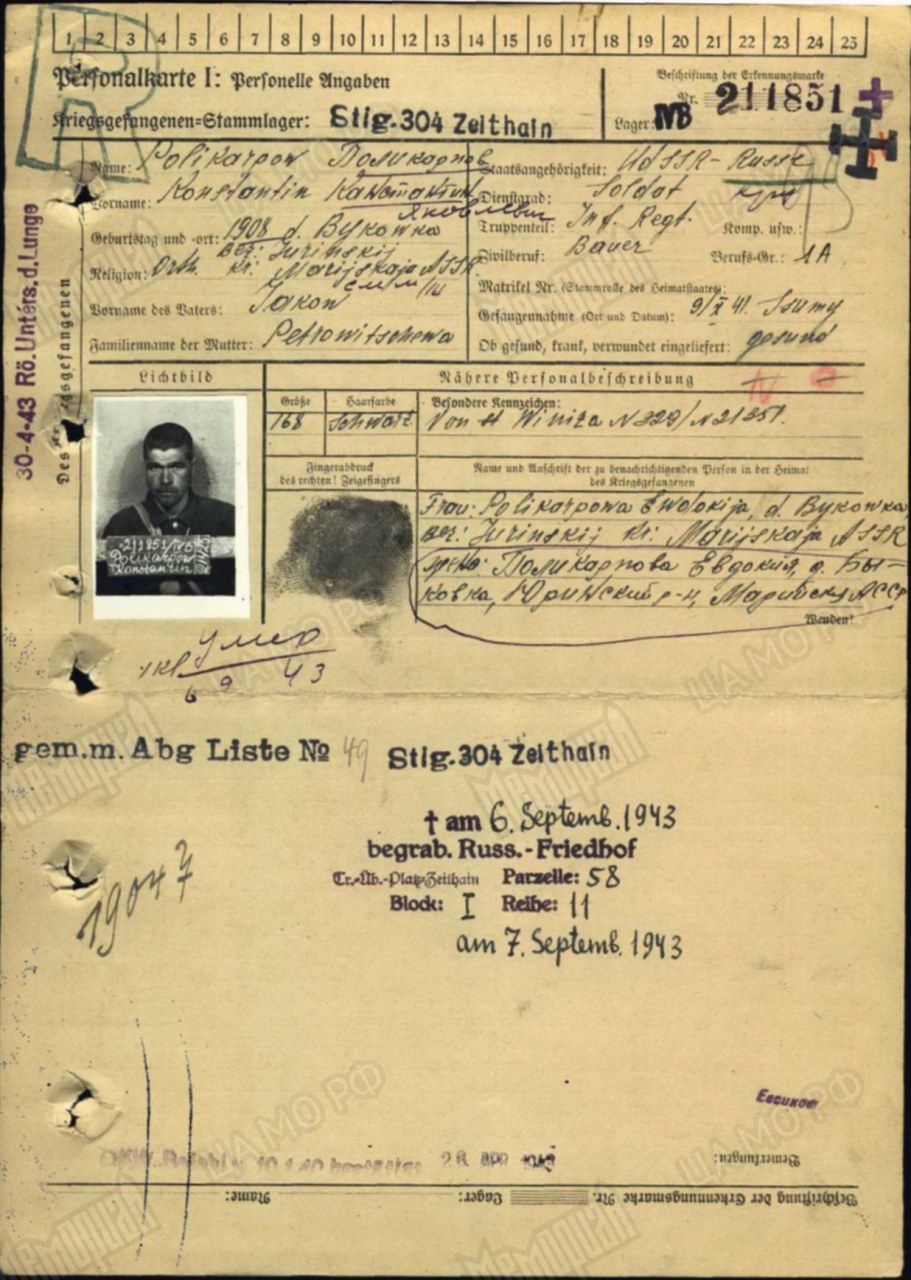 1 2 3 4 5 6 7 8 9 10 11 12 13 14 15 16 17 18 19 20 21 22 23 24 25
R
Personalkarte I: Personelle Angaben
Kriegsgefangenen=Stammlager: Stlg.304 Zeithain
Beschriftung der Erkennungsmarke
Nr. 211851
Lager: IVB
Name: Polikarpow Поликарпов
Vorname: Konstantin Константин
Яковлевич
Geburtstag und -ort: 1908 d. Bykowka
Bez: Jurinskij
Religion: Orth. kr. Marijskaja ASSR
Vorname des Vaters: Jakow
Familienname der Mutter: Petrowitschewa
Staatsangehörigkeit: UdSSR - Russe
Dienstgrad: Soldat
Truppenteil: Inf. Regt. Komp. usw.:
Zivilberuf: Bauer Berufs-Gr.: 1A
Matrikel Nr. (Stammrolle des Heimatstaates):
Gefangennahme (Ort und Datum): 9/X 41. Isumy
Ob gesund, krank, verwundet eingeliefert: gesund
30-4-43 Rö. Unters. d. Lunge
Des Kriegsgefangenen
Lichtbild
Nähere Personalbeschreibung
Größe Haarfarbe Besondere Kennzeichen:
168 Schwarz Von St Winiza N329/N21351.
Fingerabdruck
des rechten! Zeigefingers
Name und Anschrift der zu benachrichtigenden Person in der Heimat
des Kriegsgefangenen
Frau: Polikarpowa Ewdokija, d. Bykowka
Bez: Jurinskij kr. Marijskaja ASSR
Поликарпова Евдокия, д. Бы-
ковка, Юринский р-н, Марийская АССР
Wenden!
211851/IVB
Polikarpow
Konstantin
умер
6 9 43
gem.m. Abg Liste № 49 Stlg.304 Zeithain
† am 6. Septemb. 1943
begrab. Russ.-Friedhof
Tr.-Üb.-Platz-Zeithain Parzelle: 58
Block: I Reihe: 11
am 7. Septemb. 1943
19047
Евсиков
Bemerkungen:
Beschriftung der Erkennungsmarke Nr. Lager: Name:
Мемориал
ЦАМО РФ